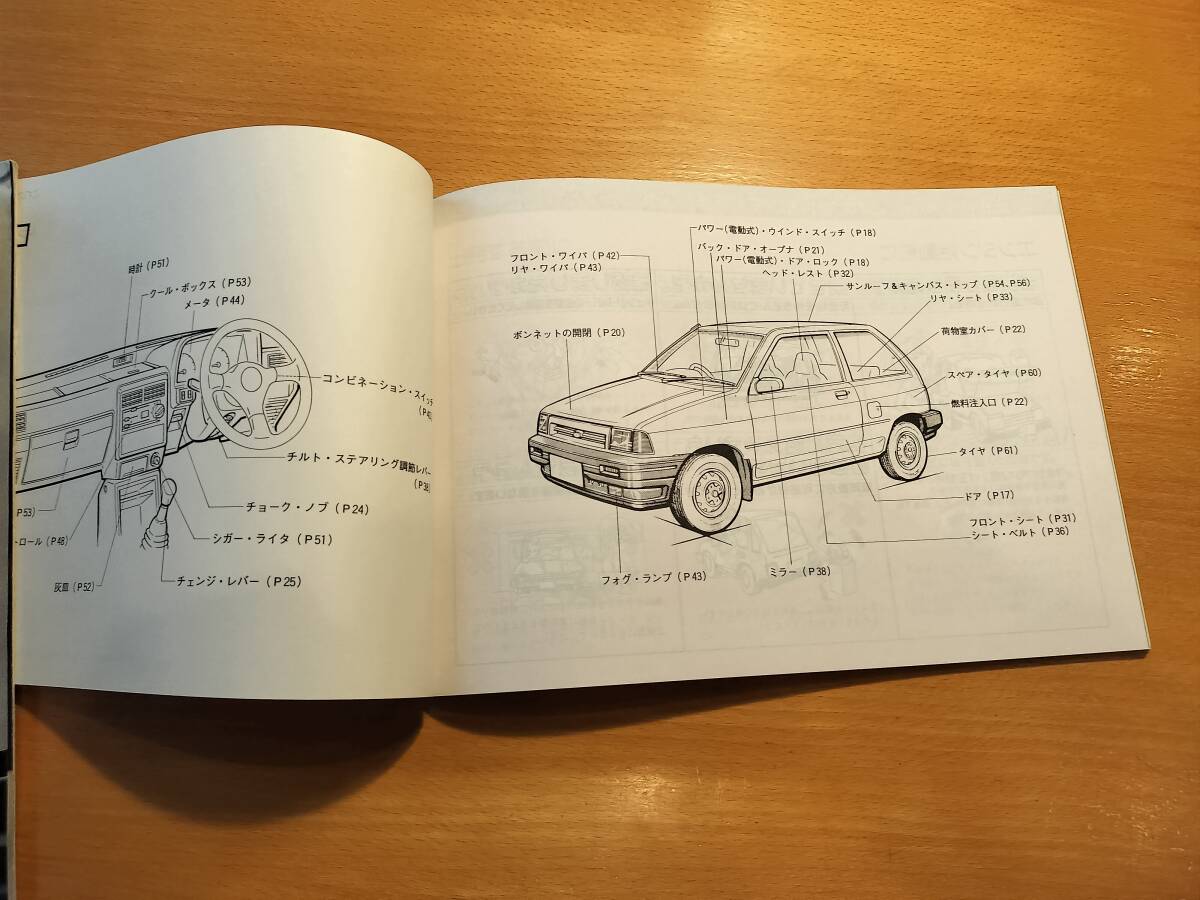 時計(P51)
クール・ボックス(P53)
メータ(P44)
コンビネーション・スイッチ
チルト・ステアリング調節レバー
(P38)
チョーク・ノブ(P24)
P53)
シガー・ライタ(P51)
トロール(P48)
灰皿(P52)
チェンジ・レバー(P25)
パワー(電動式)・ウインド・スイッチ(P18)
バック・ドア・オープナ(P21)
フロント・ワイパ(P42)
パワー(電動式)・ドア・ロック(P18)
リヤ・ワイパ(P43)
ヘッド・レスト(P32)
サンルーフ&キャンバス・トップ(P54、P56)
リヤ・シート(P33)
ボンネットの開閉(P20)
荷物室カバー(P22)
スペア・タイヤ(P60)
燃料注入口(P22)
タイヤ(P61)
ドア(P17)
フロント・シート(P31)
シート・ベルト(P36)
フォグ・ランプ(P43)
ミラー(P38)